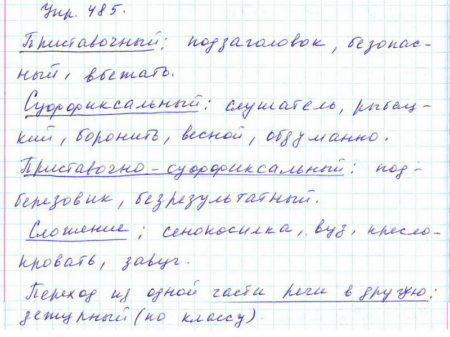 Упр. 485.
Приставочный: подзаголовок, безопас-
ный, вбежать.
Суффиксальный: слушатель, рыбац-
кий, боронить, весной, обдуманно.
Приставочно-суффиксальный: под-
березовик, безрезультатный.
Сложение; сенокосилка, вуз, кресло-
кровать, завуч.
Переход из одной части речи в другую:
дежурный (по классу).